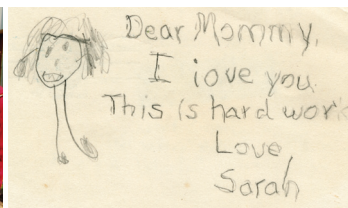 Dear Mommy,
I iove you.
This is hard work
Love,
Sarah